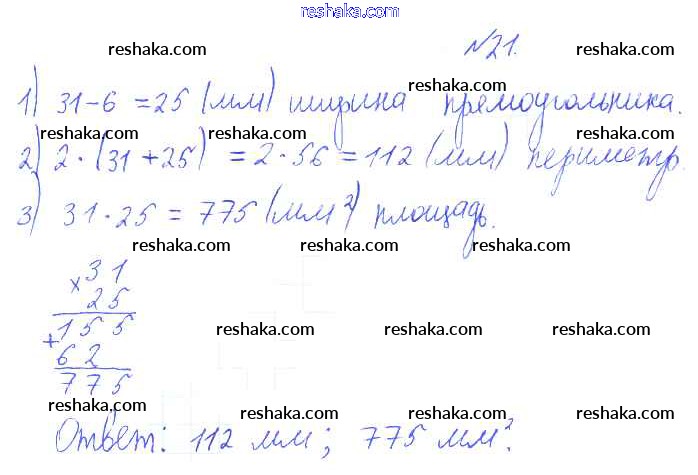 reshaka.com
№21.
reshaka.com reshaka.com
1) 31-6 =25 (мм) ширина прямоугольника.
reshaka.com
2) 2·(31+25) =2·56=112 (мм) периметр.
reshaka.com reshaka.com
3) 31·25 = 775 (мм²) площадь.
reshaka.com reshaka.com
×31
25
reshaka.com reshaka.com
+155
62
775
reshaka.com reshaka.com
Ответ: 112 мм; 775 мм².
reshaka.com reshaka.com